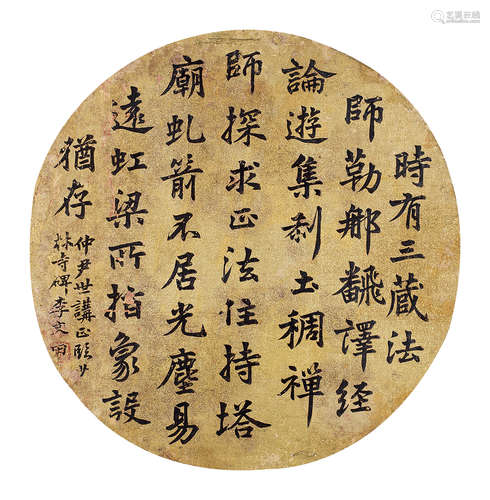 時有三藏法
師勒那飜譯経
論遊集刹土稠禪
師探求正法住持塔
廟虬箭不居光塵易
遠虹梁所指象設
猶存
仲尹世講正臨少
林寺碑李文田